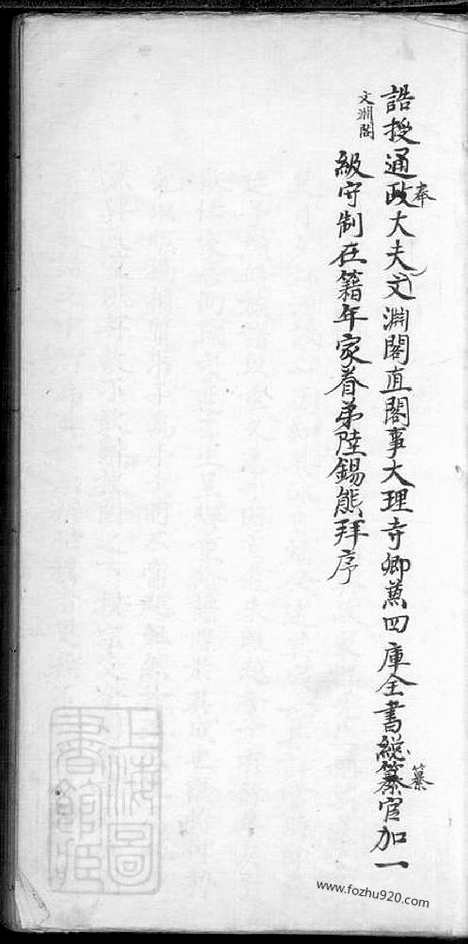 誥授通奉政大夫文淵閣直閣事大理寺卿兼四庫全書總纂官加一
纂
文淵閣
級守制在籍年家眷弟陸錫熊拜序
上海圖
書館臧
www.fozhu920.com